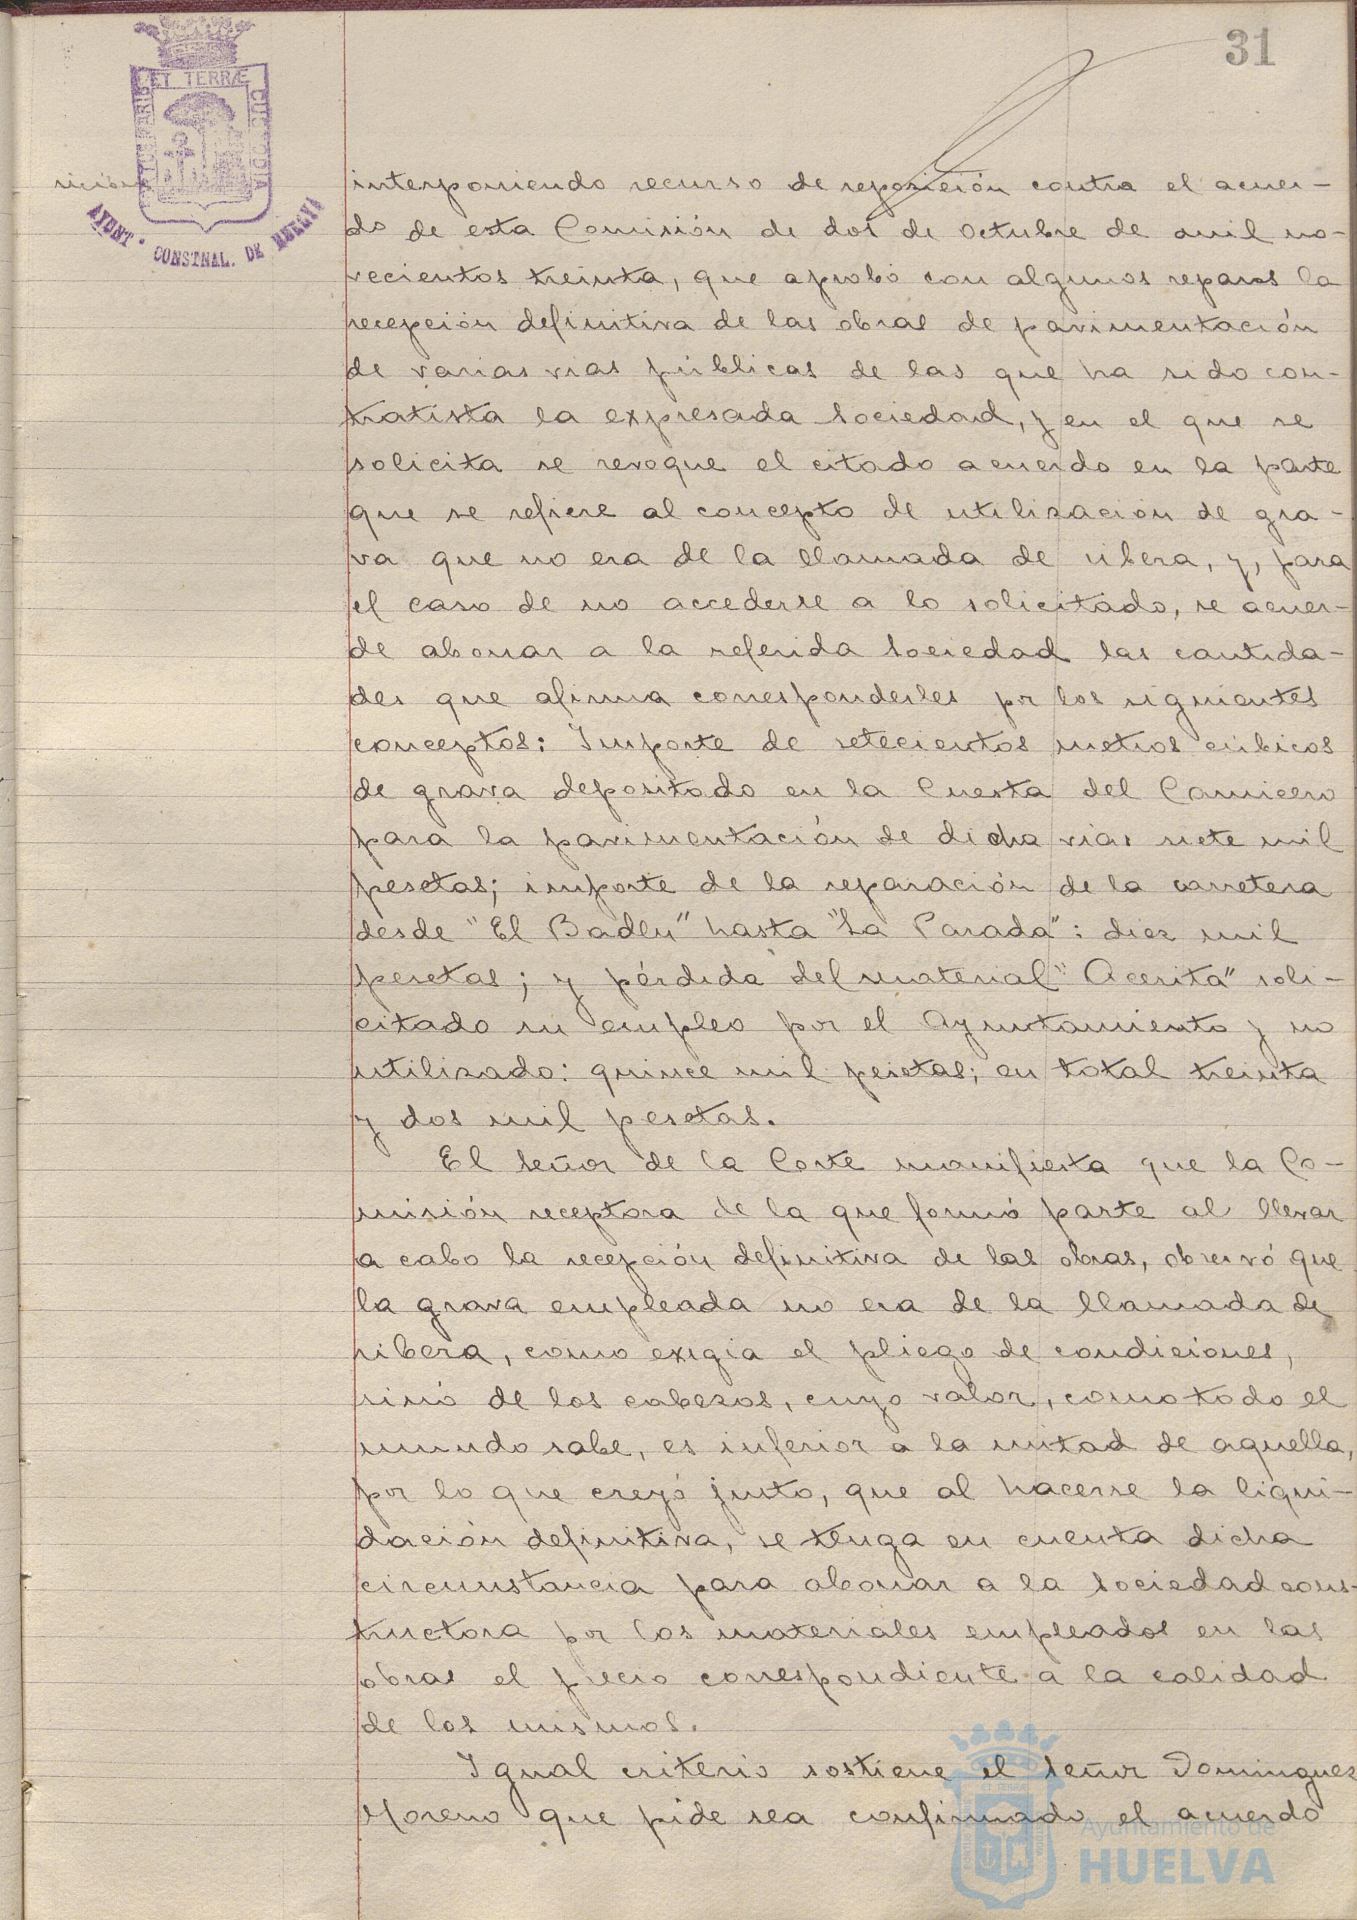 31
ET TERRÆ
AYUNT · CONSTNAL. DE HUELVA
interponiendo recurso de reposición contra el acuer-
do de esta Comisión de dos de Octubre de mil no-
vecientos treinta, que aprobó con algunos reparos la
recepción definitiva de las obras de pavimentación
de varias vias públicas de las que ha sido con-
tratista la expresada Sociedad, y en el que se
solicita se revoque el citado acuerdo en la parte
que se refiere al concepto de utilización de gra-
va que no era de la llamada de ribera, y, para
el caso de no accederse a lo solicitado, se acuer-
de abonar a la referida Sociedad las cantida-
des que afirma corresponderles por los siguientes
conceptos: Importe de setecientos metros cúbicos
de grava depositado en la Cuesta del Carnicero
para la pavimentación de dicha vías siete mil
pesetas; importe de la reparación de la carretera
desde "El Badén" hasta "La Parada": diez mil
pesetas; y pérdida del material "Acerita" soli-
citado su empleo por el Ayuntamiento y no
utilizado: quince mil pesetas; en total treinta
y dos mil pesetas.
El Señor de la Corte manifiesta que la Co-
misión receptora de la que formó parte al llevar
a cabo la recepción definitiva de las obras, observó que
la grava empleada no era de la llamada de
ribera, como exigia el pliego de condiciones,
sinó de los cabezos, cuyo valor, como todo el
mundo sabe, es inferior a la mitad de aquella,
por lo que creyó justo, que al hacerse la liqui-
dación definitiva, se tenga en cuenta dicha
circunstancia para abonar a la Sociedad cons-
tructora por los materiales empleados en las
obras el precio correspondiente a la calidad
de los mismos.
Igual criterio sostiene el Señor Dominguez
Moreno que pide sea confirmado el acuerdo
Ayuntamiento de
HUELVA